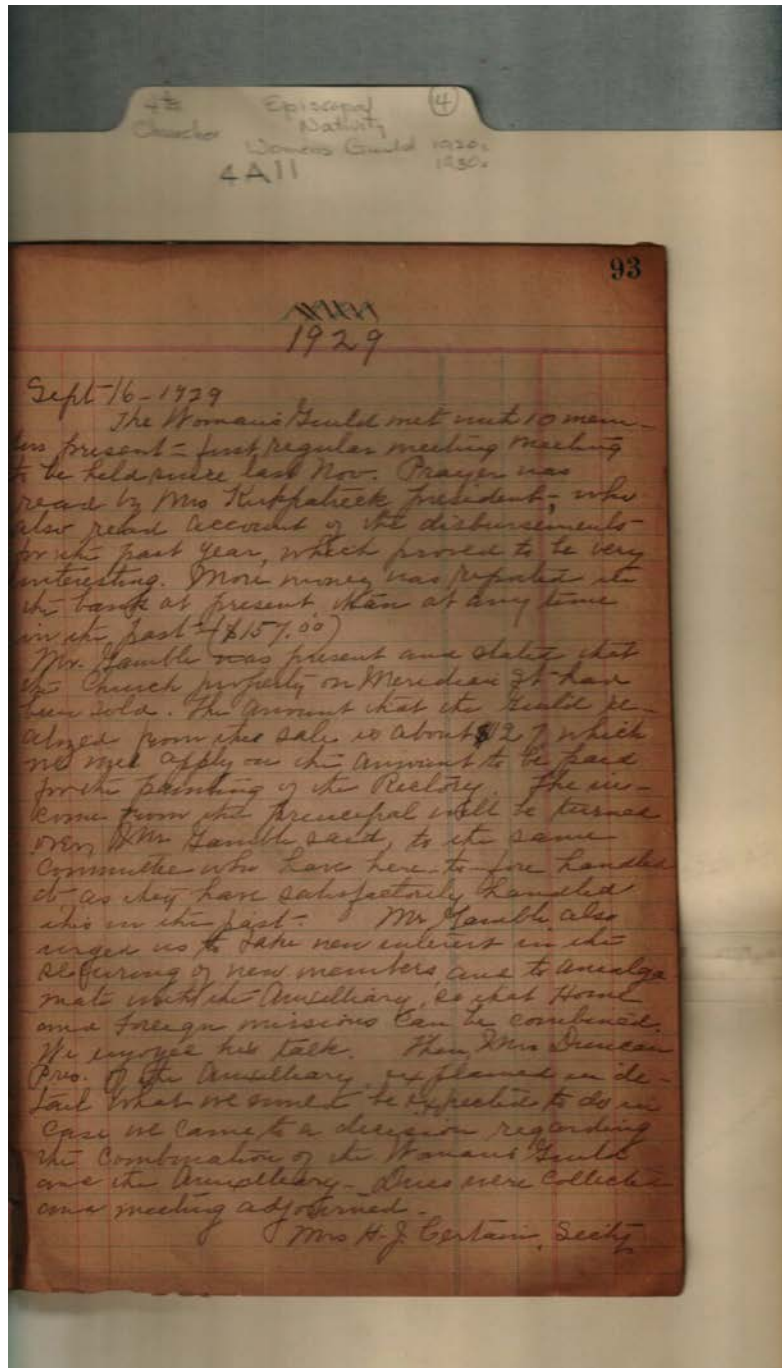 4ts Episcopal ④
Churches Nativity
Womens Guild 1920s
1930s
4A11
93
1929
Sept 16 - 1929
The Woman's Guild met with 10 mem-
bers present - first regular meeting meeting
to be held since last Nov. Prayer was
read by Mrs Kirkpatrick president, who
also read account of the disbursements
for the past year, which proved to be very
interesting. More money was reported in
the bank at present, than at any time
in the past - ($157.00)
Mr. Gamble was present and stated that
the Church property on Meridian St had
been sold. The amount that the Guild re-
alized from this sale is about $127 which
we will apply on the amount to be paid
for the painting of the Rectory. The in-
come from the principal will be turned
over, Mr Gamble said, to the same
Committee who have here-to-fore handled
it, as they have satisfactorily handled
this in the past. Mr Gamble also
urged us to take new interest in the
securing of new members and to amalga
mate with the Auxilliary, so that Home
and Foreign missions can be combined.
We enjoyed his talk. Then, Mrs Duncan
Pres. of the Auxilliary, explained in de-
tail what we would be expected to do in
case we came to a decision regarding
the combination of the Woman's Guild
and the Auxilliary - Dues were collected
and meeting adjourned.
Mrs H. J. Certain, Sec'ty